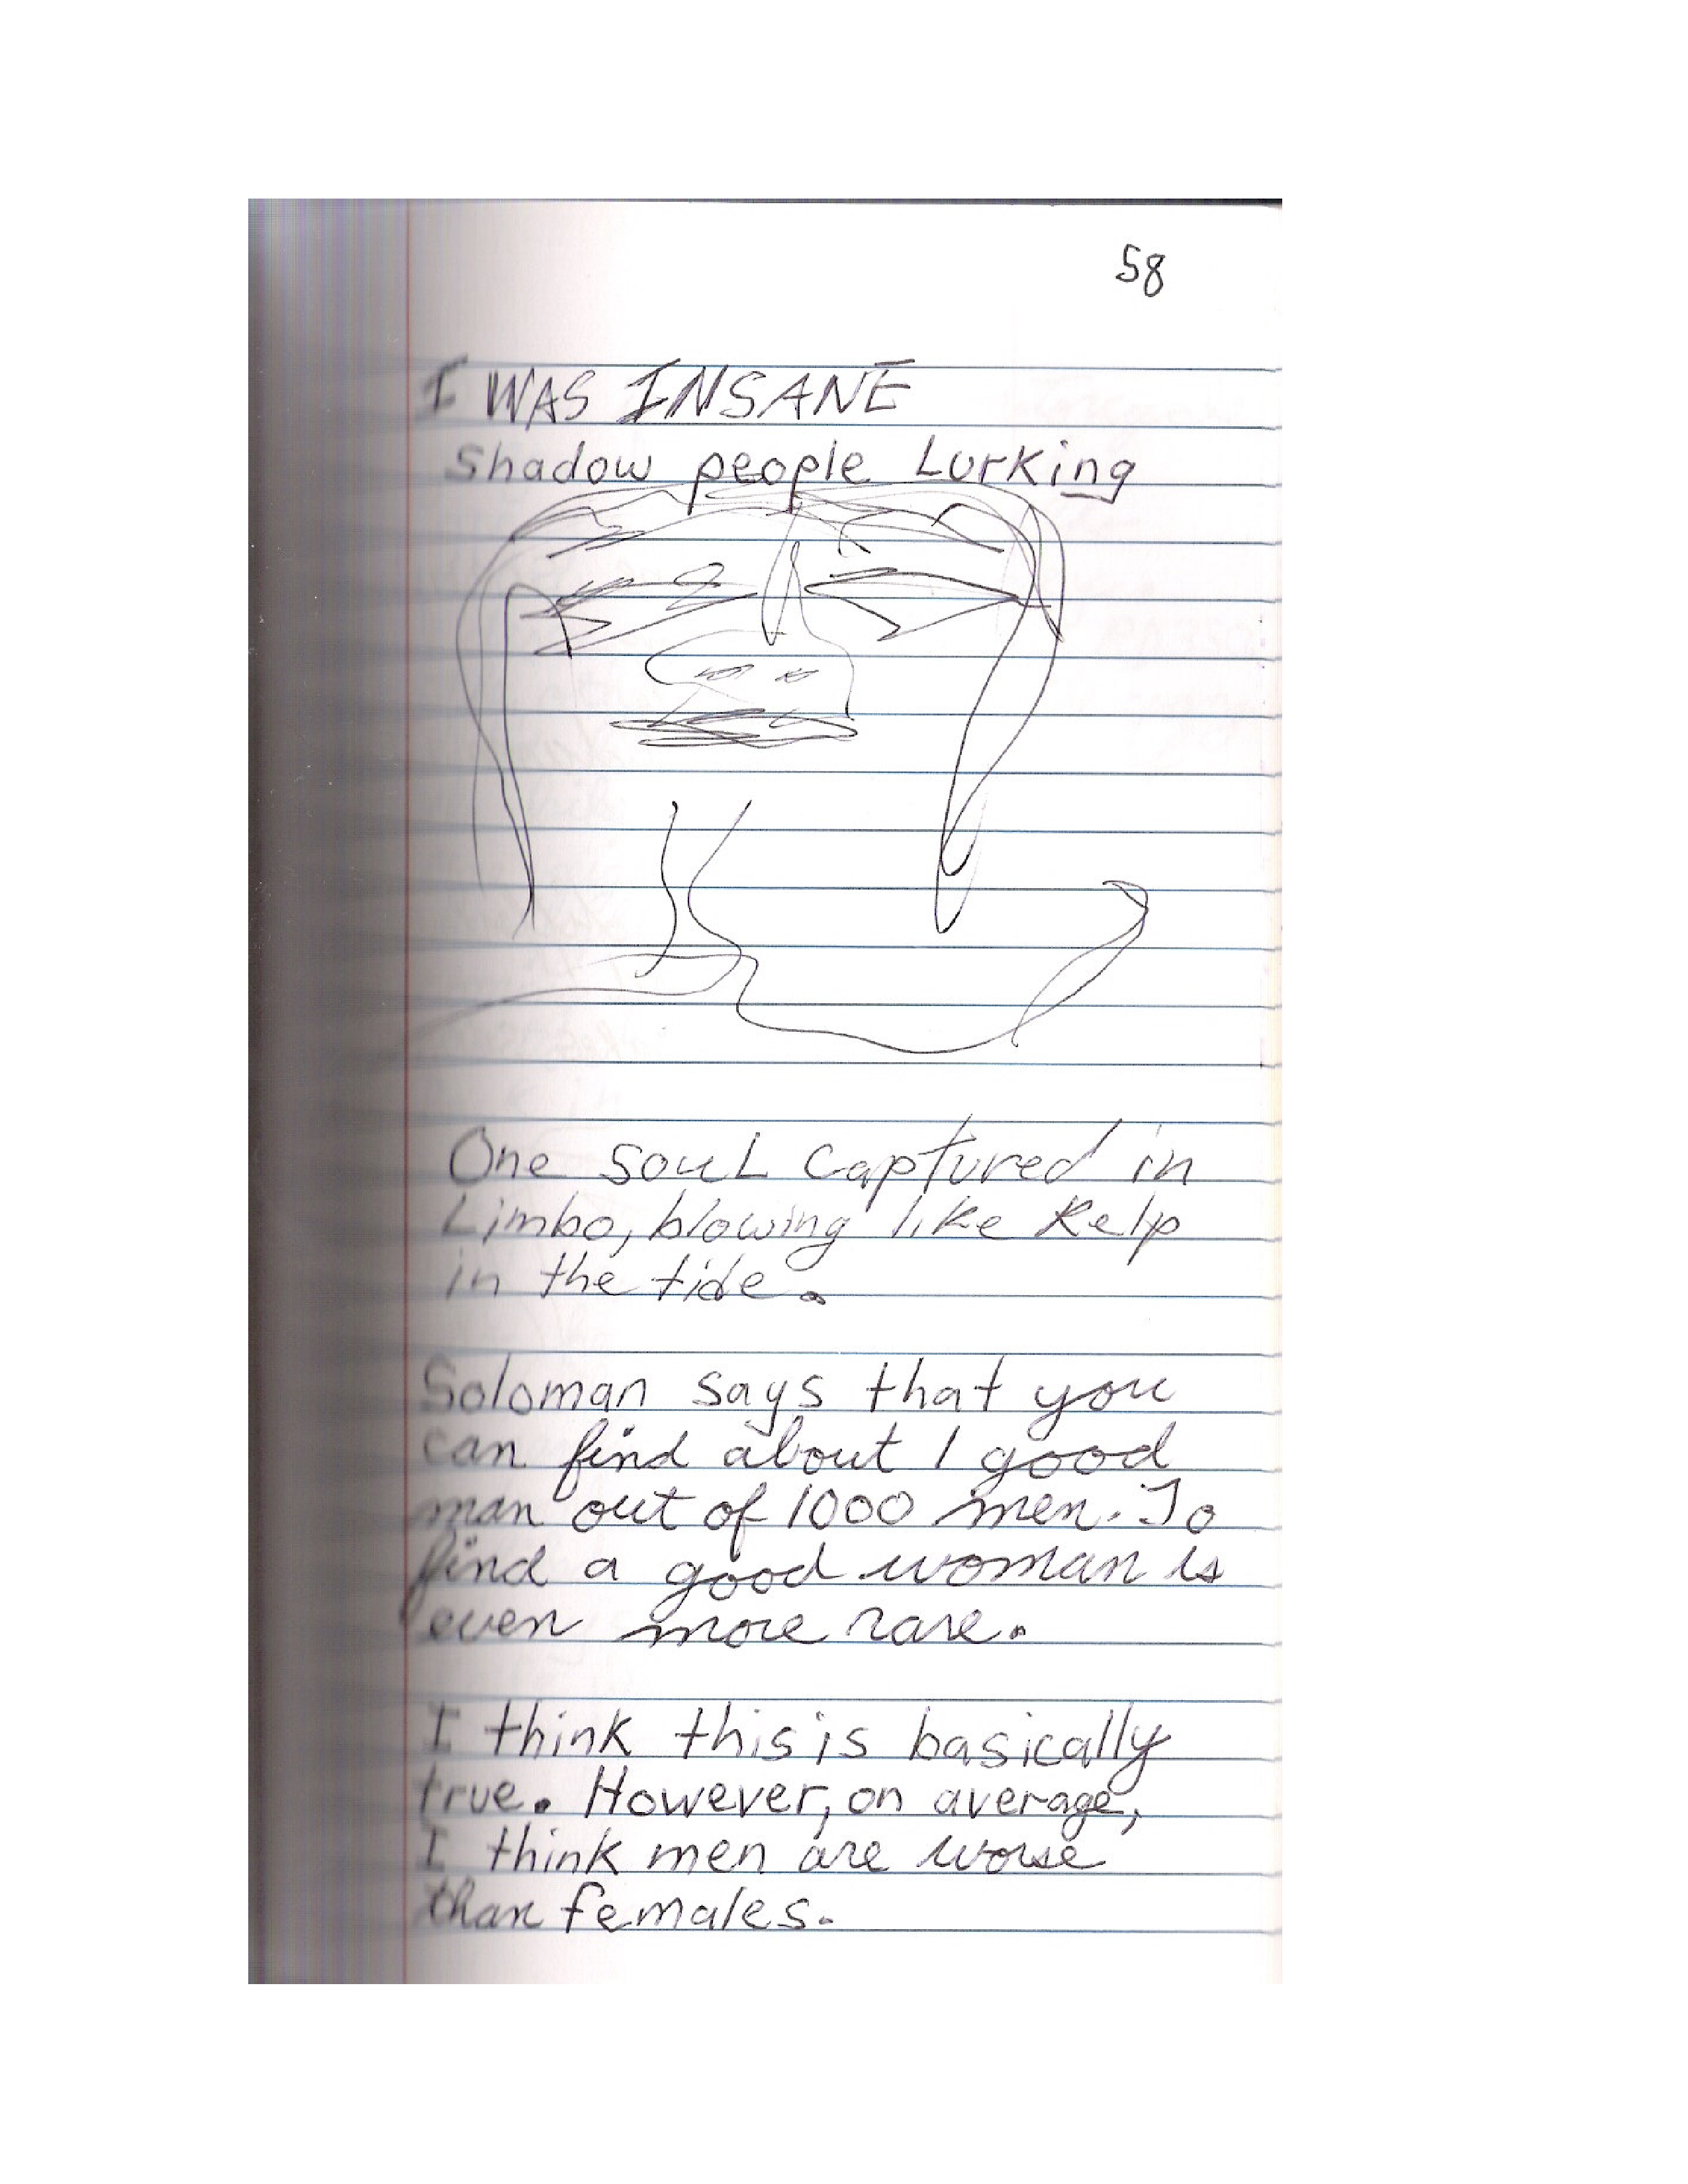 58
I WAS INSANE
Shadow people Lurking
One SouL Captured in
Limbo, blowing like Kelp
in the tide.
Soloman says that you
can find about 1 good
man out of 1000 men. To
find a good woman is
even more rare.
I think this is basically
true. However, on average,
I think men are worse
than females.